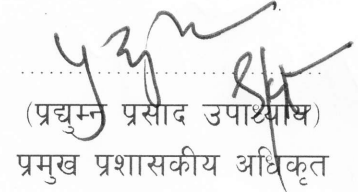 (प्रद्युम्न प्रसाद उपाध्याय)
प्रमुख प्रशासकीय अधिकृत